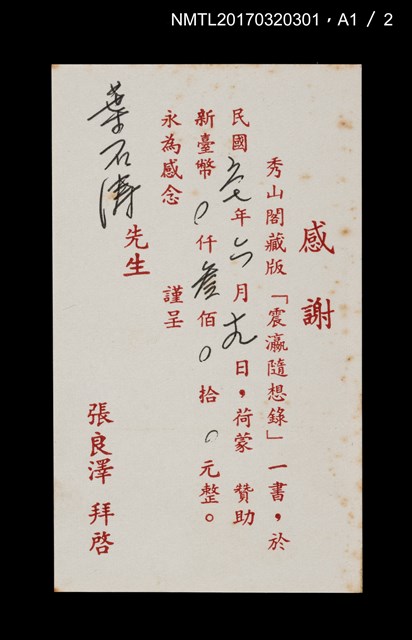 NMTL20170320301，A1 / 2
感謝
秀山閣藏版「震瀛隨想錄」一書，於
民國六七年六月九日，荷蒙 贊助
新臺幣0仟叁佰0拾0元整。
永為感念 謹呈
葉石濤先生
張良澤 拜啓